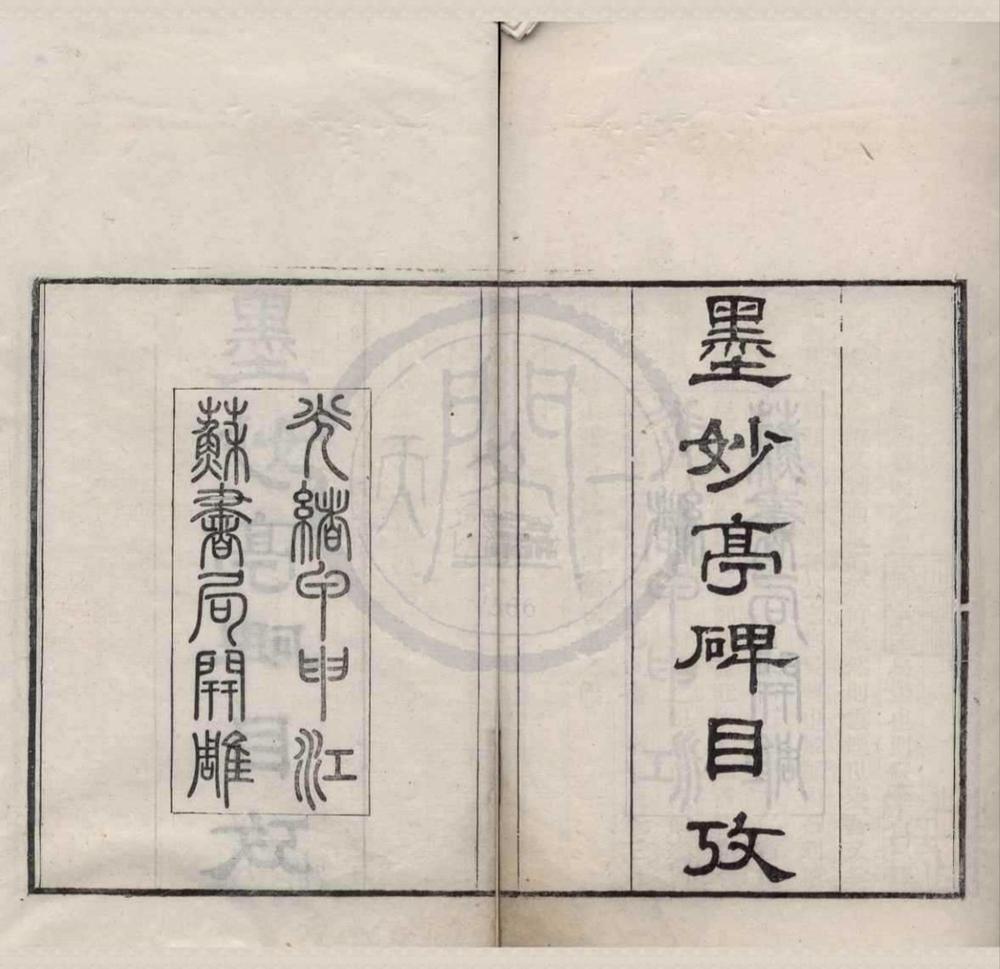 墨妙亭碑目攷
光緒甲申江
蘇書局開雕
天一閣
1566